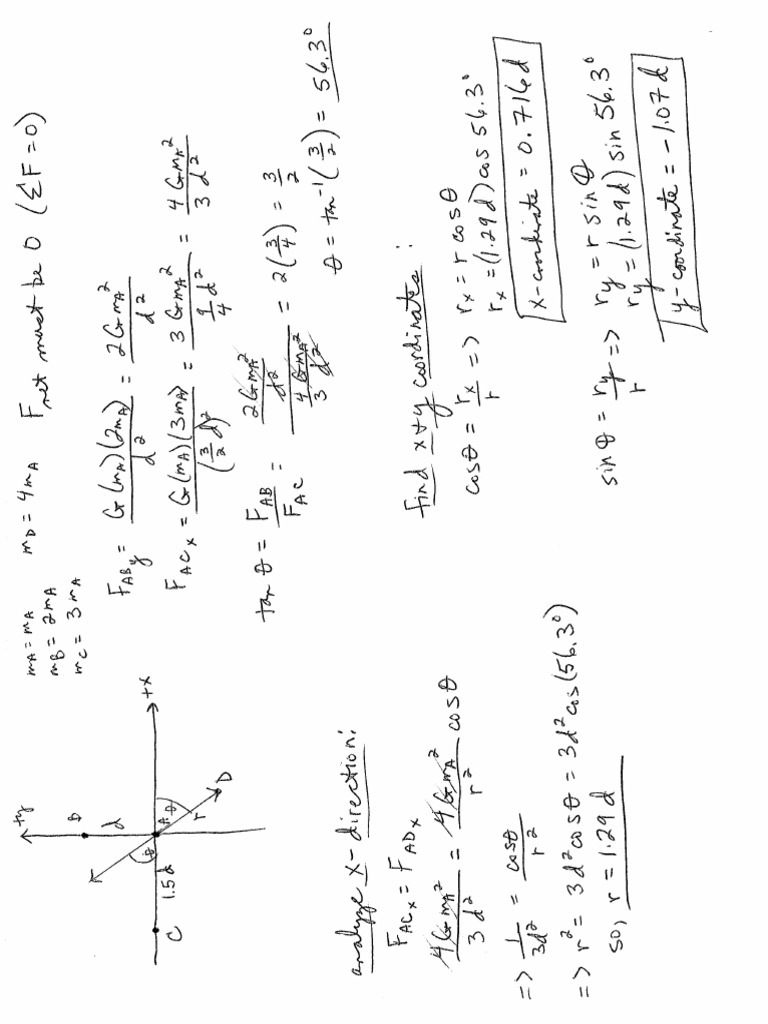 +y
B
d
C
1.5d
θ
A
θ
r
D
+x
mA = mA   mD = 4mA   Fnet must be 0 (ΣF=0)
mB = 2mA
mC = 3mA
F_ABy = G(mA)(2mA)/d² = 2GmA²/d²
F_ACx = G(mA)(3mA)/(3/2 d)² = 3GmA²/(9/4 d²) = 4GmA²/3d²
tan θ = F_AB/F_AC = (2GmA²/d²)/(4GmA²/3d²) = 2(3/4) = 3/2
θ = tan⁻¹(3/2) = 56.3°
analyze x-direction:
F_ACx = F_ADx
4GmA²/3d² = 4GmA²/r² cosθ
=> 1/3d² = cosθ/r²
=> r² = 3d²cosθ = 3d²cos(56.3°)
so, r = 1.29d
Find x+y coordinates:
cosθ = rx/r => rx = r cosθ
rx = (1.29d)cos 56.3°
x-coordinate = 0.716d
sinθ = ry/r => ry = r sinθ
ry = (1.29d) sin 56.3°
y-coordinate = -1.07d